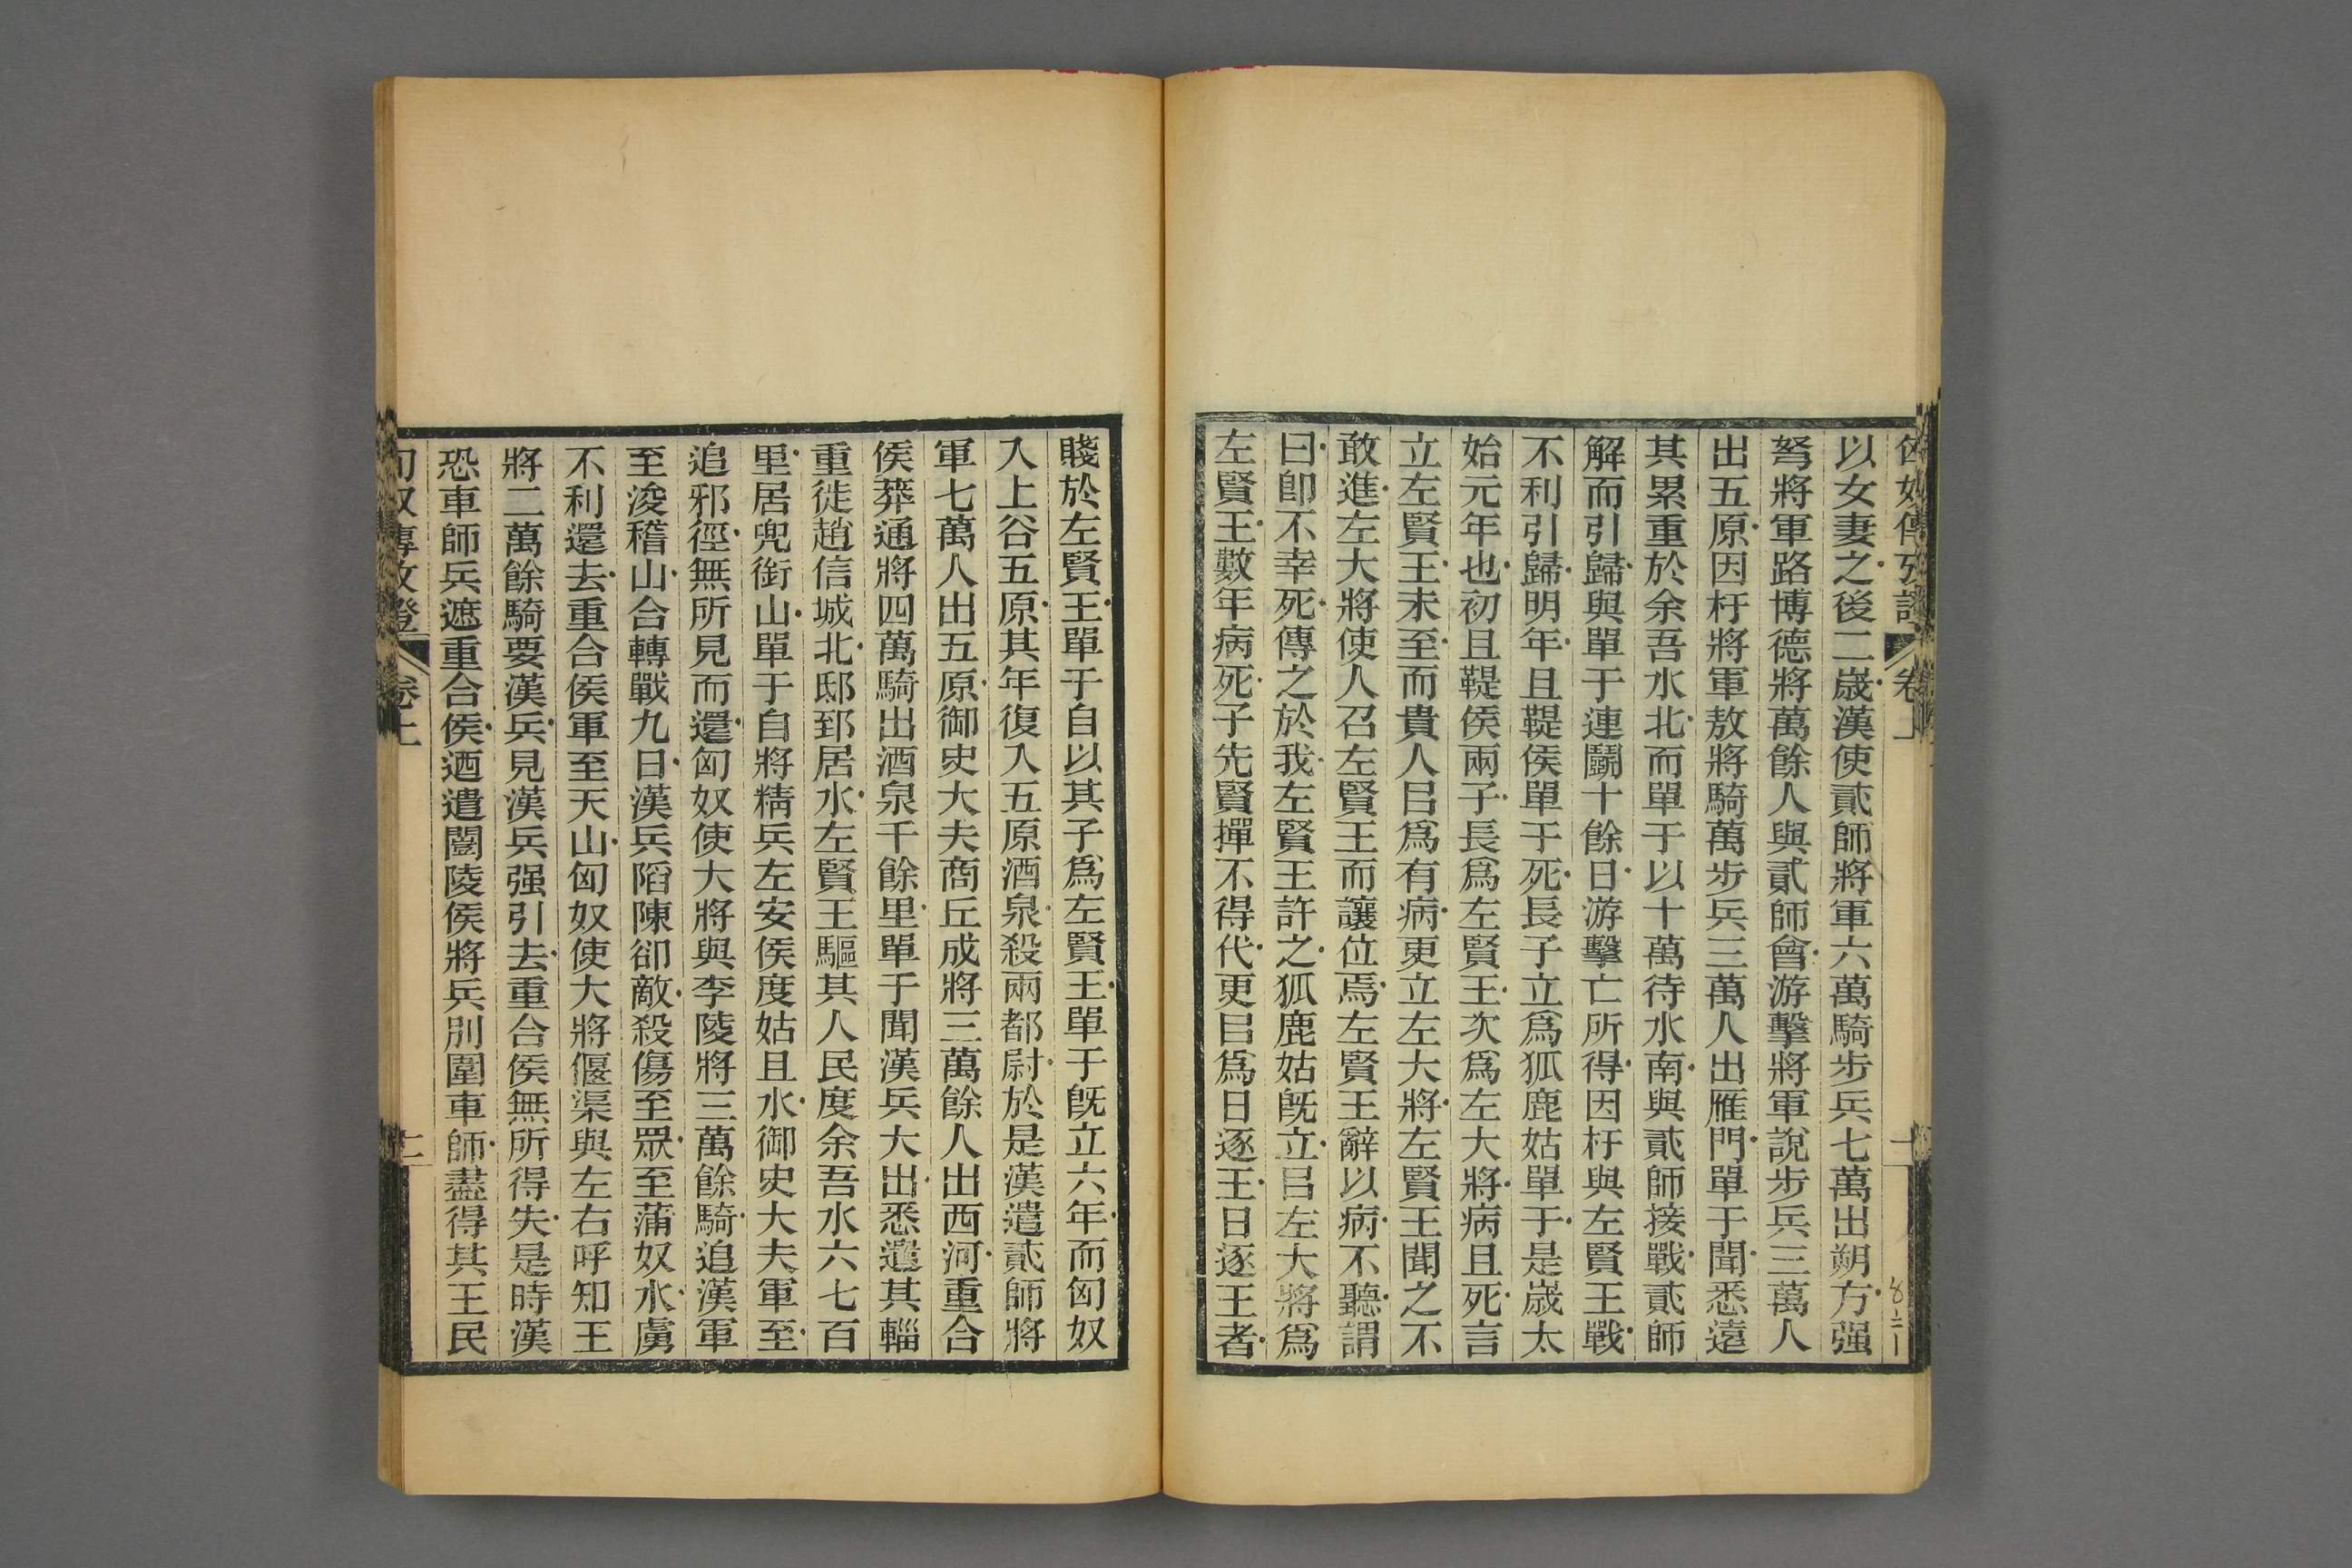 匈奴傳攷證
卷上
以女妻之後二歲漢使貳師將軍六萬騎步兵七萬出朔方强
弩將軍路博德將萬餘人與貳師會游擊將軍說步兵三萬人
出五原因杅將軍敖將騎萬步兵三萬人出雁門單于聞悉遠
其累重於余吾水北而單于以十萬待水南與貳師接戰貳師
解而引歸與單于連鬭十餘日游擊亡所得因杅與左賢王戰
不利引歸明年且鞮侯單于死長子立爲狐鹿姑單于是歲太
始元年也初且鞮侯兩子長爲左賢王次爲左大將病且死言
立左賢王未至而貴人㠯爲有病更立左大將左賢王聞之不
敢進左大將使人召左賢王而讓位焉左賢王辭以病不聽謂
曰卽不幸死傳之於我左賢王許之狐鹿姑旣立㠯左大將爲
左賢王數年病死子先賢撣不得代更㠯爲日逐王日逐王者
賤於左賢王單于自以其子爲左賢王單于旣立六年而匈奴
入上谷五原其年復入五原酒泉殺兩都尉於是漢遣貳師將
軍七萬人出五原御史大夫商丘成將三萬餘人出西河重合
侯莽通將四萬騎出酒泉千餘里單于聞漢兵大出悉遣其輜
重徙趙信城北邸郅居水左賢王驅其人民度余吾水六七百
里居兜銜山單于自將精兵左安侯度姑且水御史大夫軍至
追邪徑無所見而還匈奴使大將與李陵將三萬餘騎追漢軍
至浚稽山合轉戰九日漢兵䧟陳卻敵殺傷至眾至蒲奴水虜
不利還去重合侯軍至天山匈奴使大將偃渠與左右呼知王
將二萬餘騎要漢兵見漢兵强引去重合侯無所得失是時漢
恐車師兵遮重合侯迺遣闓陵侯將兵別圍車師盡得其王民
匈奴傳攷證
卷上